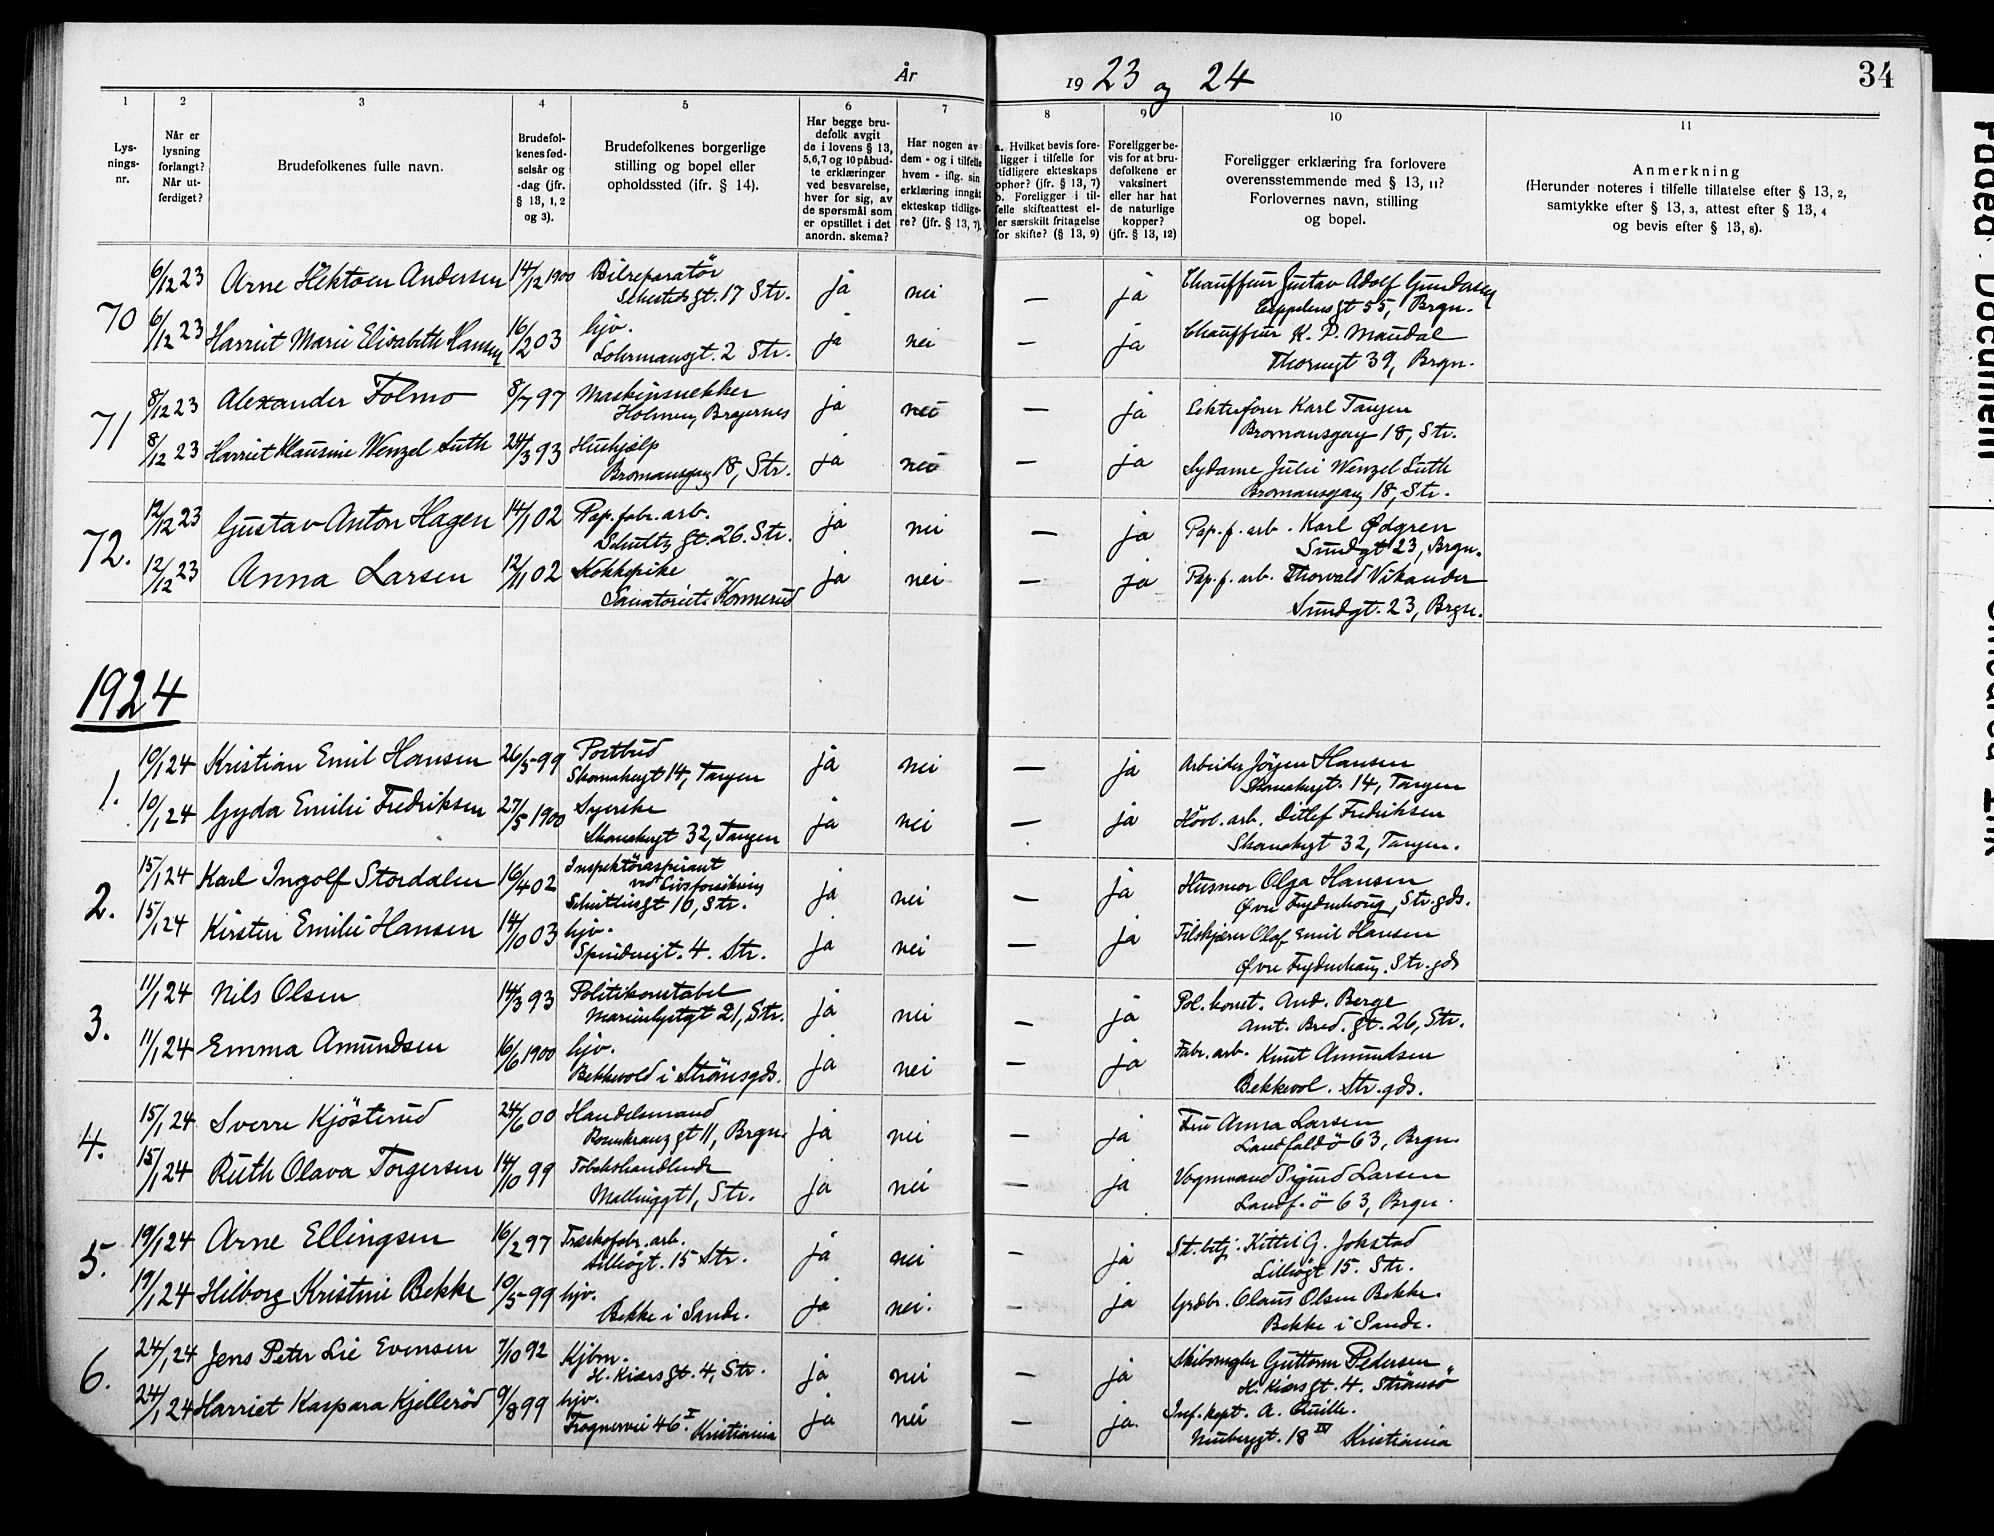 År 1923 og 24
34
1
2
3
4
5
6
7
8
9
10
11
Lys-
nings-
nr.
Når er
lysning
forlangt?
Når ut-
ferdiget?
Brudefolkenes fulle navn.
Brudefol-
kenes fød-
selsår og
-dag (jfr.
§ 13, 1, 2
og 3).
Brudefolkenes borgerlige
stilling og bopel eller
opholdssted (ifr. § 14).
Har begge bru-
defolk avgit
de i lovens § 13,
5,6,7 og 10 påbud-
te erklæringer
ved besvarelse,
hver for sig, av
de spørsmål som
er opstillet i det
anordn. skema?
Har nogen av
dem - og i tilfelle
hvem - iflg. sin
erklæring inngått
ekteskap tidlige-
re? (jfr. § 13, 7).
a. Hvilket bevis fore-
ligger i tilfelle for
tidligere ekteskaps
ophør? (jfr. § 13, 7)
b. Foreligger i til-
felle skifteattest el-
ler særskilt fritagelse
for skifte? (§ 13, 9)
Foreligger be-
vis for at bru-
defolkene er
vaksinert
eller har hat
de naturlige
kopper?
(jfr. § 13, 12)
Foreligger erklæring fra forlovere
overensstemmende med § 13, 11?
Forlovernes navn, stilling
og bopel.
Anmerkning
(Herunder noteres i tilfelle tillatelse efter § 13, 2,
samtykke efter § 13, 3, attest efter § 13, 4
og bevis efter § 13, 8).
70
6/12 23 Arne Hektoen Andersen 14/12 1900 Bilreparatör ja nei — ja Chauffeur Gustav Adolf Gundersen
gt. 17 Str. gt 55, Brgn.
6/12 23 Harriet Marie Elisabeth Hansen 16/2 03 hjv. ja nei — ja Chauffeur K. P. Maudal
Lohrmansgt. 2 Str. Thornegt 39, Brgn.
71
8/12 23 Alexander Folmo 8/7 97 Maskinsnekker ja nei — ja Karl Tangen
Holmen, Bragernes Bromansgang 18, Str.
8/12 23 Harriet Klausine Wenzel Luth 24/3 93 Hushjelp ja nei — ja Sydame Julie Wenzel Luth
Bromansgang 18, Str. Bromansgang 18, Str.
72.
12/12 23 Gustav Anton Hagen 14/1 02 Pap. fabr. arb. ja nei — ja Pap. f. arb. Karl Ødgren
Schultz gt. 26. Str. Sundgt 23, Brgn.
12/12 23 Anna Larsen 12/11 02 Kokkepike ja nei — ja Pap. f. arb. Thorvald Vikander
Sanatoriet. Konnerud Sundgt. 23, Brgn.
1924
1.
10/1 24 Kristian Emil Hansen 26/5 99 Postbud ja nei — ja Arbeider Jörgen Hansen
Skanskegt 14, Tangen Skanskegt. 14, Tangen
10/1 24 Gyda Emilie Fredriksen 27/5 1900 Syerske ja nei — ja Hövl. arb. Ditlef Fredriksen
Skanskegt 32, Tangen Skanskegt 32, Tangen.
2.
15/1 24 Karl Ingolf Stordalen 16/4 02 Inspektöraspirant ja nei — ja Husmor Olga Hansen
ved Livsforsikring Øvre Frydenhaug, Str. gds.
gt 16, Str.
15/1 24 Kirsten Emilie Hansen 14/10 03 hjv. ja nei — ja Filskjærer Olaf Emil Hansen
4. Str. Øvre Frydenhaug. Str. gds
3.
11/1 24 Nils Olsen 14/3 93 Politikonstabel ja nei — ja Pol. konst. And. Berge
Marienlystgt 21, Str. Amt. Bred. gt. 26, Str.
11/1 24 Emma Amundsen 16/6 1900 hjv. ja nei — ja Fabr. arb. Knut Amundsen
Bekkevold i Strömsgds. Bekkevol. Str. gds.
4.
15/1 24 Sverre Kjösterud 24/6 00 Handelsmand ja nei — ja Fru Anna Larsen
Rosenkranz gt 11, Brgn. Landfaldö 63, Brgn.
15/1 24 Ruth Olava Torgersen 14/10 99 Tobakshandlende ja nei — ja Vognmand Sigurd Larsen
Mallinggt 1, Str. Landf. ö 63, Brgn.
5.
19/1 24 Arne Ellingsen 16/2 97 Træskofabr. arb. ja nei — ja St. betj. Kittil G. Jokstad
Lillögt. 15 Str. Lillögt 15. Str.
19/1 24 Hilborg Kristine Bekke 10/5 99 hjv. ja nei. — ja Grdbr. Olaus Olsen Bekke.
Bekke i Sande. Bekke i Sande.
6.
24/1 24 Jens Peter Lie Evensen 7/10 92 Kjbm. ja nei — ja Skibsmegler Guttorm Pedersen
H. Kiærs gt. 4, Str. H. Kiærs gt. 4. Strömsö
24/1 24 Harriet Kaspara Kjellerød 9/8 99 hjv. ja nei — ja. Inf. kapt. A.
Frognervei 46 I Kristiania Niubergt. 18 IV Kristiania